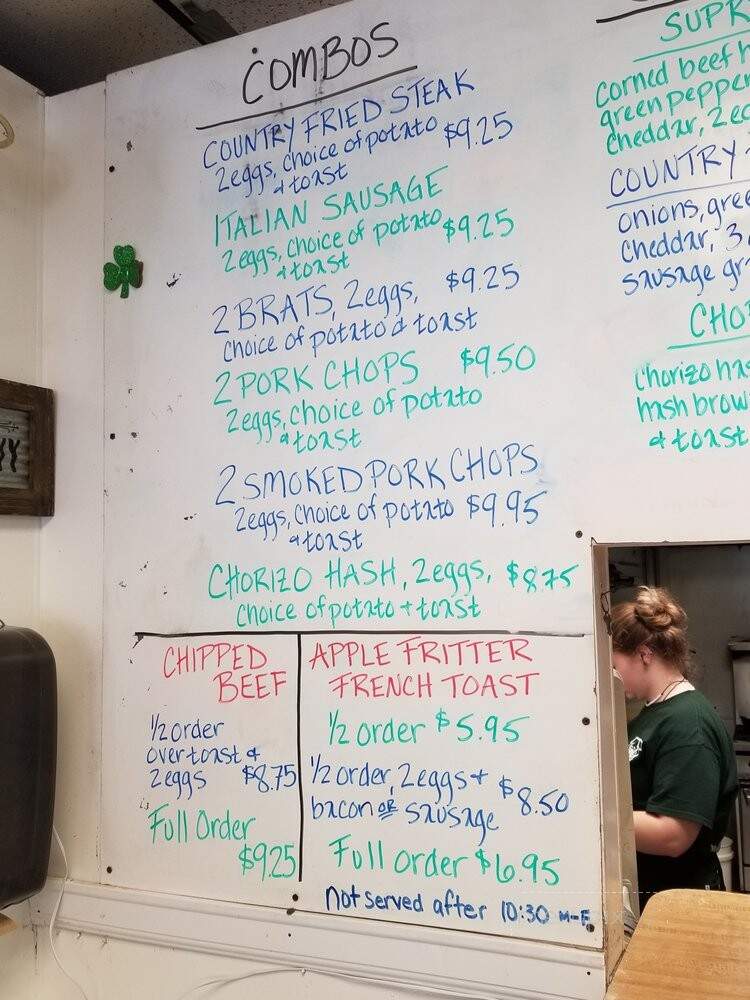 COMBOS
COUNTRY FRIED STEAK
2 eggs, choice of potato $9.25
& toast
ITALIAN SAUSAGE
2 eggs, choice of potato $9.25
& toast
2 BRATS, 2 eggs, $9.25
choice of potato & toast
2 PORK CHOPS $9.50
2 eggs, choice of potato
& toast
2 SMOKED PORK CHOPS
2 eggs, choice of potato $9.95
& toast
CHORIZO HASH, 2 eggs, $8.75
choice of potato + toast
CHIPPED
BEEF
1/2 order
over toast &
2 eggs $8.75
Full Order
$9.25
APPLE FRITTER
FRENCH TOAST
1/2 order $5.95
1/2 order, 2 eggs + $8.50
bacon or sausage
Full order $6.95
Not served after 10:30 M-F
corned beef
cheddar,
COUNTRY
onions,
cheddar, 3
sausage
Chorizo
hash
& toast